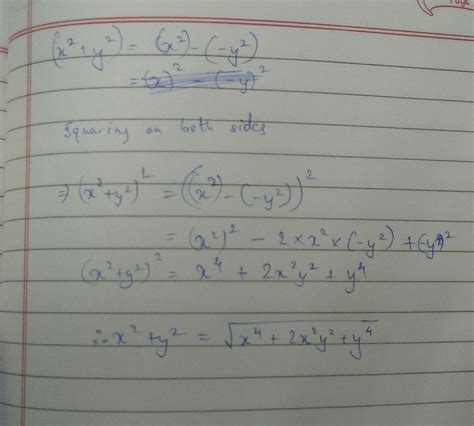 (x² + y²) = (x²) - (-y²)
= (x)² - (-y)²
Squaring on both sides
⇒ (x² + y²)² = ((x²) - (-y²))²
= (x²)² - 2 × x² × (-y²) + (-y²)²
(x² + y²)² = x⁴ + 2x²y² + y⁴
∴ x² + y² = √(x⁴ + 2x²y² + y⁴)